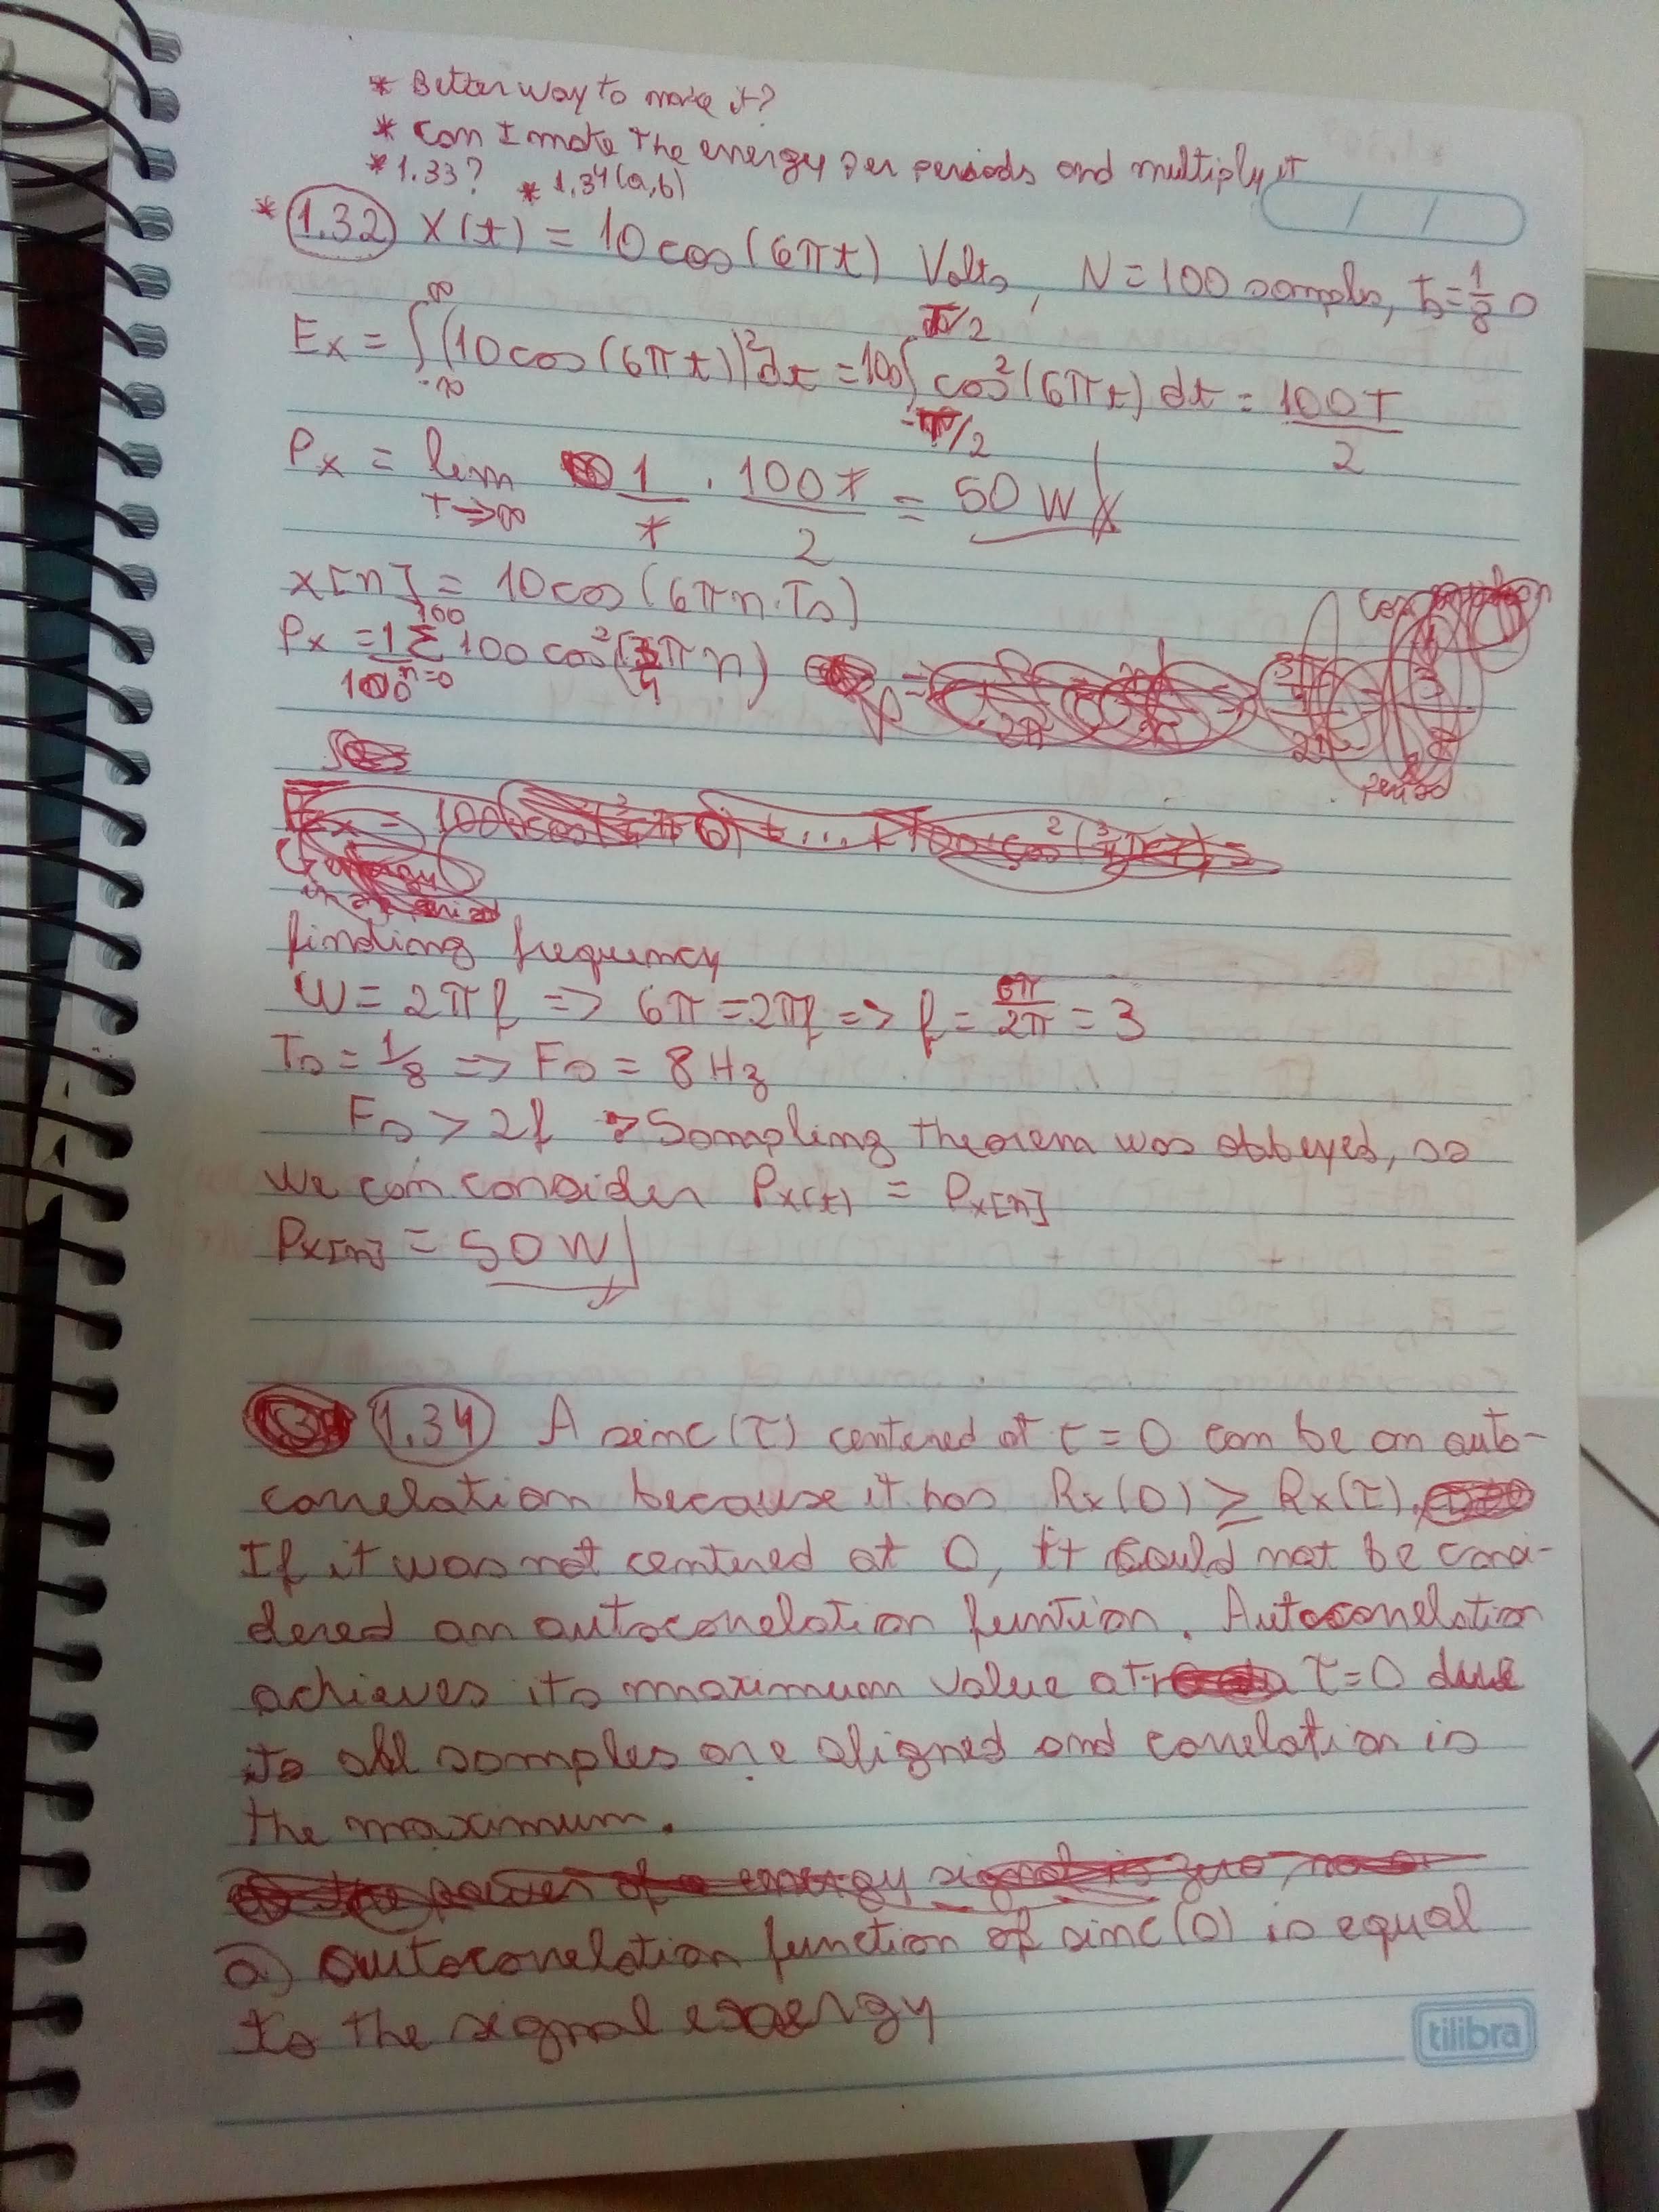 * Better way to make it?
* Can I make the energy per periods and multiply it
* 1.33? * 1.34(a,b)
* 1.32 X(t) = 10cos(6πt) Volts, N=100 samples, Ts=1/8 s
Ex = ∫_{-∞}^{∞} (10cos(6πt))²dt = 100∫_{-T/2}^{T/2} cos²(6πt)dt = 100T/2
Px = lim_{T→∞} 1/T . 100T/2 = 50 W
x[n] = 10cos(6πn.Ts)
Px = 1/100 Σ_{n=0}^{100} 100 cos²(3/4 πn)
finding frequency
W = 2πf => 6π = 2πf => f = 6π/2π = 3
Ts = 1/8 => Fs = 8 Hz
Fs > 2f Sampling theorem was obbeyed, so
we can consider Px(t) = Px[n]
Px[n] = 50 W
1.34 A sinc(τ) centered at τ=0 can be an auto-
correlation because it has Rx(0) ≥ Rx(τ).
If it was not centered at 0, it could not be consi-
dered an autocorrelation funtion. Autocorrelation
achieves its maximum value at τ=0 due
to all samples are aligned and correlation is
the maximum.
the power of a energy signal is zero,
a) autocorrelation function of sinc(0) is equal
to the signal energy
tilibra